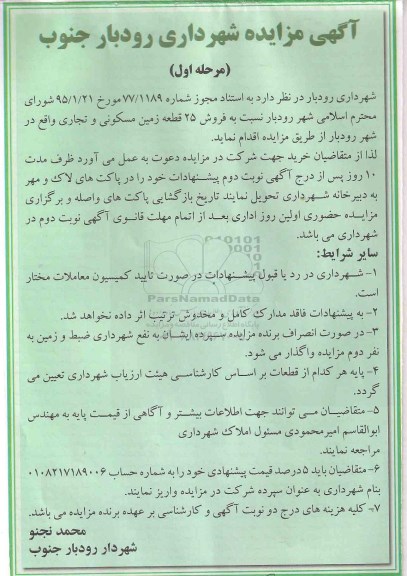 آگهی مزایده شهرداری رودبار جنوب
(مرحله اول)
شهرداری رودبار در نظر دارد به استناد مجوز شماره ۷۷/۱۱۸۹ مورخ ۹۵/۱/۲۱ شورای
محترم اسلامی شهر رودبار نسبت به فروش ۲۵ قطعه زمین مسکونی و تجاری واقع در
شهر رودبار از طریق مزایده اقدام نماید.
لذا از متقاضیان خرید جهت شرکت در مزایده دعوت به عمل می آورد ظرف مدت
۱۰ روز پس از درج آگهی نوبت دوم پیشنهادات خود را در پاکت های لاک و مهر
به دبیرخانه شهرداری تحویل نمایند تاریخ بازگشایی پاکت های واصله و برگزاری
مزایده حضوری اولین روز اداری بعد از اتمام مهلت قانونی آگهی نوبت دوم در
شهرداری می باشد.
سایر شرایط:
۱- شهرداری در رد یا قبول پیشنهادات در صورت تایید کمیسیون معاملات مختار
است.
۲- به پیشنهادات فاقد مدارک کامل و مخدوش ترتیب اثر داده نخواهد شد.
۳- در صورت انصراف برنده مزایده سپرده ایشان به نفع شهرداری ضبط و زمین به
نفر دوم مزایده واگذار می شود.
۴- پایه هر کدام از قطعات بر اساس کارشناسی هیئت ارزیاب شهرداری تعیین می
گردد.
۵- متقاضیان می توانند جهت اطلاعات بیشتر و آگاهی از قیمت پایه به مهندس
ابوالقاسم امیرمحمودی مسئول املاک شهرداری
مراجعه نمایند.
۶- متقاضیان باید ۵درصد قیمت پیشنهادی خود را به شماره حساب ۰۱۰۸۲۱۷۱۸۹۰۰۶
بنام شهرداری به عنوان سپرده شرکت در مزایده واریز نمایند.
۷- کلیه هزینه های درج دو نوبت آگهی و کارشناسی بر عهده برنده مزایده می باشد.
محمد نجنو
شهردار رودبار جنوب
ParsNamadData